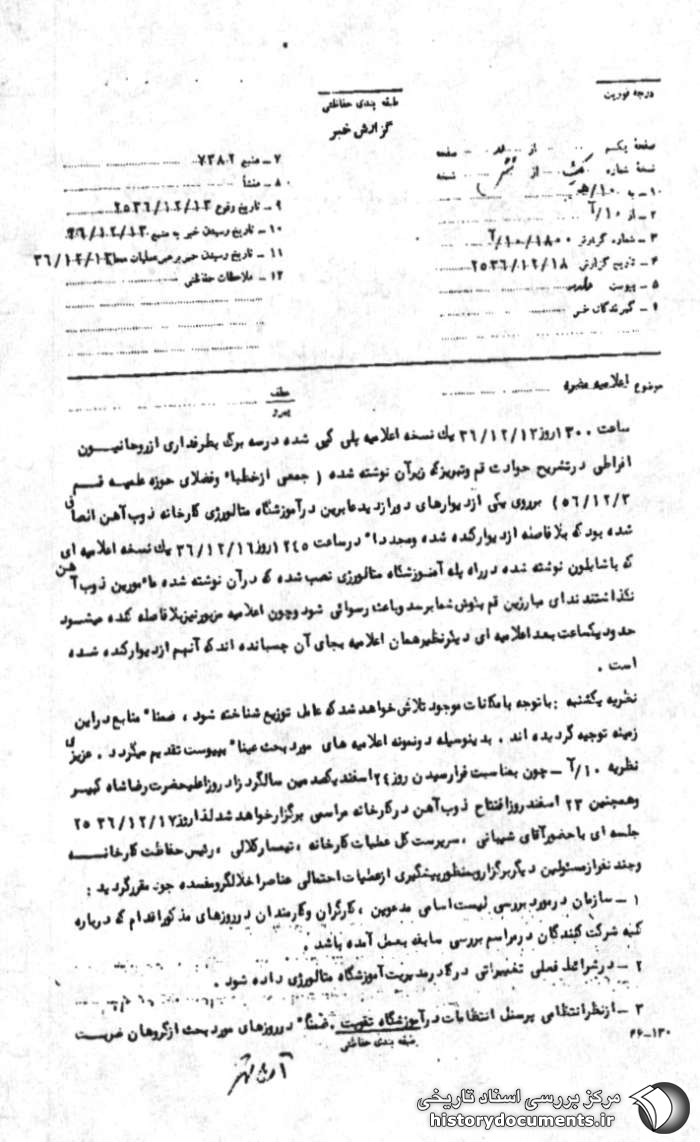 درجه فوریت
طبقه بندی حفاظتی
گزارش خبر
صفحهٔ یکم از صفحه
نسخهٔ شماره از نسخه
۱ـ به ۱۰/ه
۲ـ از ۱۰/آ
۳ـ شماره گزارش ۱۸۰۰/۱۰/آ
۴ـ تاریخ گزارش ۲۵۳۶/۱۲/۱۸
۵ـ پیوست
۶ـ گیرندگان خبر
۷ـ منبع ۷۳۸۲
۸ـ منشأ
۹ـ تاریخ وقوع ۲۵۳۶/۱۲/۱۳
۱۰ـ تاریخ رسیدن خبر به منبع ۳۶/۱۲/۱۳
۱۱ـ تاریخ رسیدن خبر برهبر عملیات ۳۶/۱۲/۱۳
۱۲ـ ملاحظات حفاظتی
موضوع اعلامیه مضره
عطف
پیرو
ساعت ۱۳۰۰ روز ۳۶/۱۲/۱۳ یك نسخه اعلامیه پلی کپی شده درسه برگ بطرفداری ازروحانیـــون
افراطی درتشریح حوادث قم وتبریزکه زیرآن نوشته شده ( جمعی ازخطباء وفضلای حوزه علمیـه قــم
۵۶/۱۲/۲) برروی یکی ازدیوارهای دورازدیدعابرین درآموزشگاه متالورژی کارخانه ذوب آهن الصاق
شده بودکه بلافاصله ازدیوارکنده شده ومجدداً درساعت ۱۲۴۵ روز ۳۶/۱۲/۱۶ یك نسخه اعلامیه ای
که باشابلون نوشته شده درراه پله آموزشگاه متالورژی نصب شده که درآن نوشته شده مأمورین ذوب آهن
نگذاشتند ندای مبارزین قم بگوش شما برسد وباعث رسوائی شود وچون اعلامیه مزبورنیزبلافاصله کنده میشـود
حدودیکساعت بعداعلامیه ای دیگرنظیرهمان اعلامیه بجای آن چسبانده اندکه آنهم ازدیوارکنده شـــده
است .
نظریه یکشنبه : باتوجه بامکانات موجود تلاش خواهد شد که عامل توزیع شناخته شود ، ضمناً منابع دراین
زمینه توجیه گردیده اند . بدینوسیله دونمونه اعلامیه های موردبحث عیناً بپیوست تقدیم میگردد . عزیزی
نظریه ۱۰/آ ـ چون بمناسبت فرارسیدن روز ۲۴ اسفند یکصدمین سالگرد زادروزاعلیحضرت رضاشاه کبیـــر
وهمچنین ۲۳ اسفند روزافتتاح ذوب آهن درکارخانه مراسمی برگزارخواهد شد لذا روز ۲۵۳۶/۱۲/۱۷
جلسه ای باحضورآقای شیبانی ، سرپرست کل عملیات کارخانه ، تیمسارکلالی ، رئیس حفاظت کارخانــــه
وچند نفرازمسئولین دیگربرگزاروبمنظورپیشگیری ازعملیات احتمالی عناصراخلالگرومفسده جو مقررگردید :
۱ـ سازمان درمورد بررسی لیست اسامی مدعوین ، کارگران وکارمندان درروزهای مذکوراقدام که درباره
کلیه شرکت کنندگان درمراسم بررسی سابقه بعمل آمده باشد .
۲ـ درشرائط فعلی تغییراتی درکادرمدیریت آموزشگاه متالورژی داده شود .
۳ـ ازنظرانتظامی پرسنل انتظامات درآموزشگاه تقویت . ضمناً درروزهای موردبحث ازگروهان ضربــت
طبقه بندی حفاظتی
۲۶-۱۳۰
مرکز بررسی اسناد تاریخی
historydocuments.ir